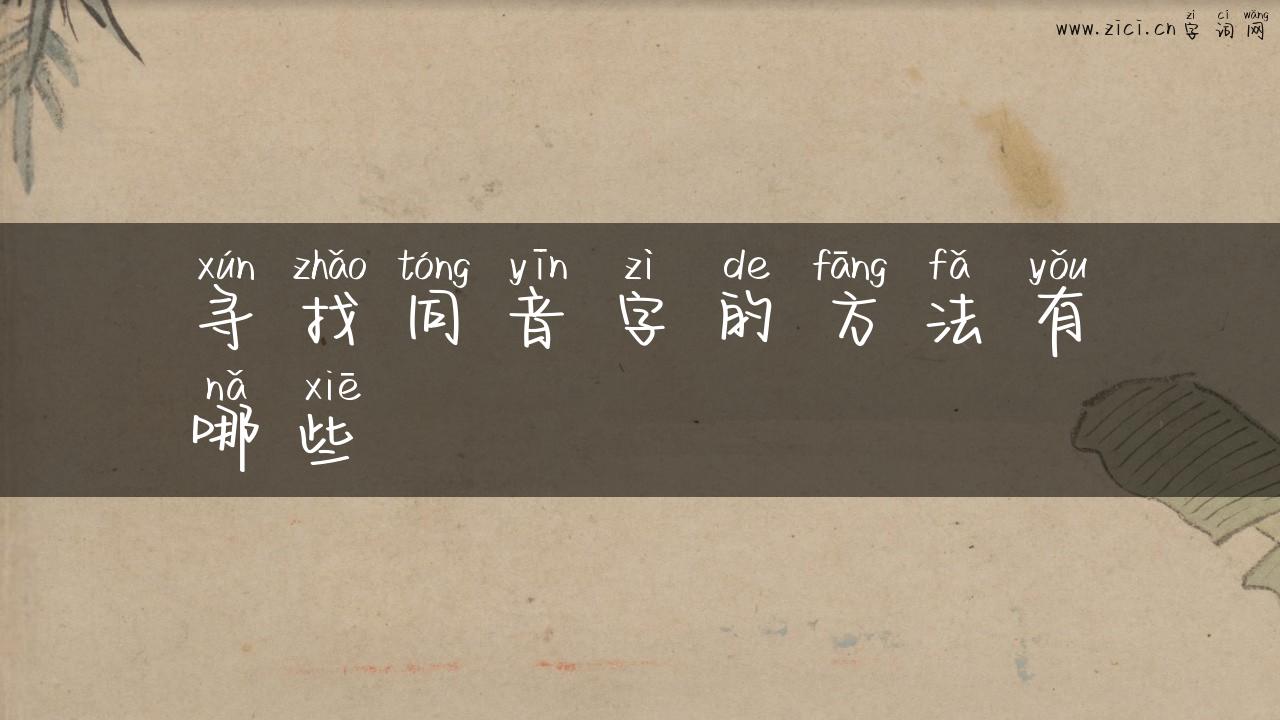 zì cí wǎng
www.zici.cn 字词网
xún zhǎo tóng yīn zì de fāng fǎ yǒu
寻找同音字的方法有
nǎ xiē
哪些